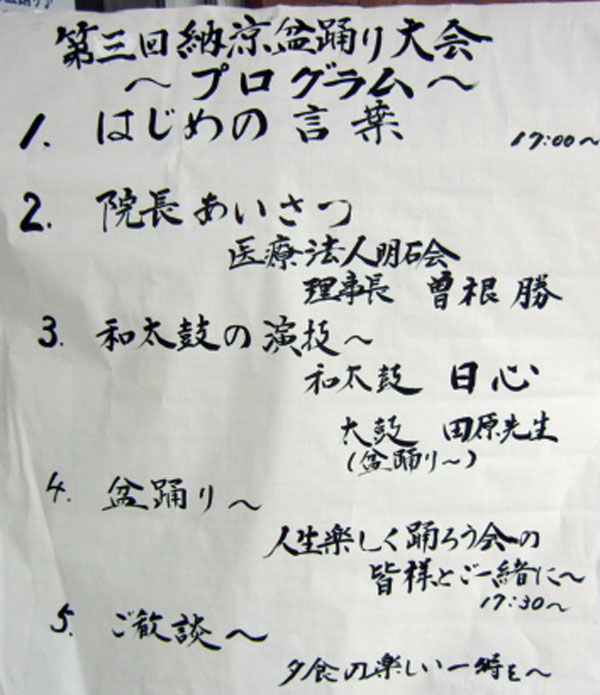 第三回納涼盆踊り大会
～プログラム～
1. はじめの言葉 17:00～
2. 院長あいさつ
医療法人明石会
理事長 曽根勝
3. 和太鼓の演技～
和太鼓 日心
太鼓 田原先生
(盆踊り～)
4. 盆踊り～
人生楽しく踊ろう会の
皆様とご一緒に～
17:30～
5. ご歓談～
夕食の楽しい一時を～